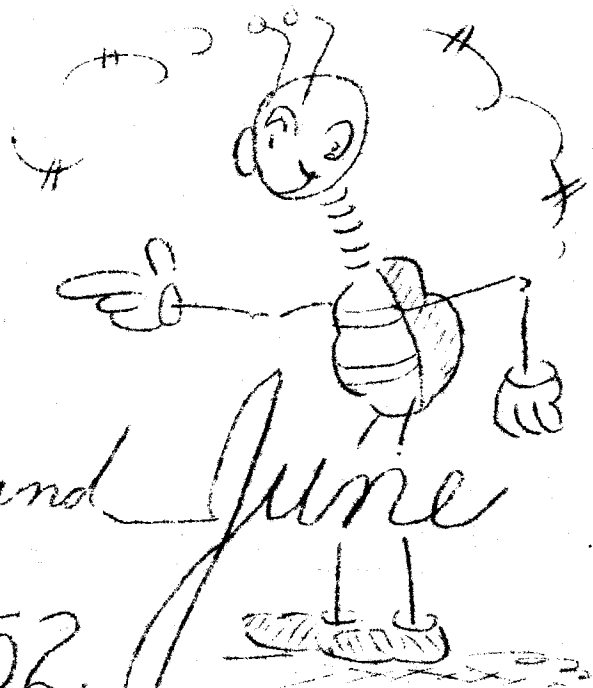 and June
52.